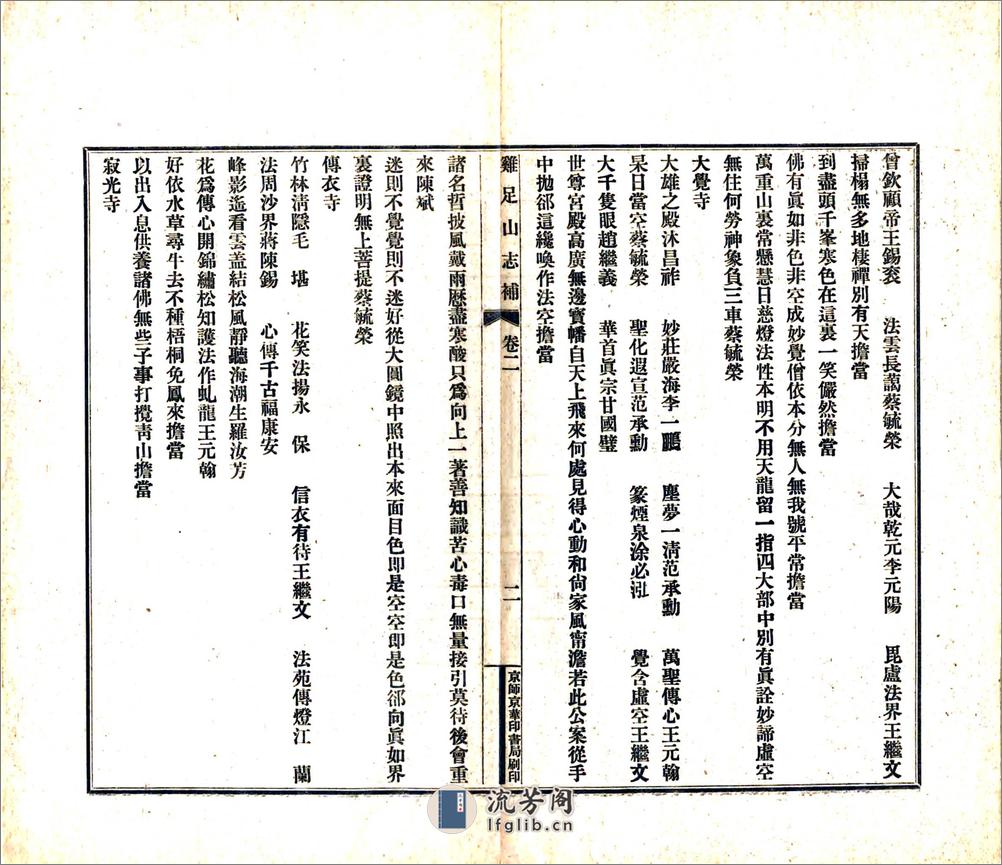 曾欽顧帝王錫袞　法雲長藹蔡毓榮　大哉乾元李元陽　毘盧法界王繼文
掃榻無多地棲禪別有天擔當
到盡頭千峯寒色在這裏一笑儼然擔當
佛有眞如非色非空成妙覺僧依本分無人無我號平常擔當
萬重山裏常懸慧日慈燈法性本明不用天龍留一指四大部中別有眞詮妙諦虛空
無住何勞神象負三車蔡毓榮
大覺寺
大雄之殿沐昌祚　妙莊嚴海李一鵬　塵夢一淸范承勳　萬聖傳心王元翰
杲日當空蔡毓榮　聖化遐宣范承勳　篆煙泉涂必泓　覺含虛空王繼文
大千隻眼趙繼義　華首眞宗甘國璧
世尊宮殿高廣無邊寶幡自天上飛來何處見得心動和尙家風甯澹若此公案從手
中拋郤這纔喚作法空擔當
雞足山志補　卷二　二　京師京華印書局刷印
諸名哲披風戴雨歷盡寒酸只爲向上一著善知識苦心毒口無量接引莫待後會重
來陳斌
迷則不覺覺則不迷好從大圓鏡中照出本來面目色即是空空即是色郤向眞如界
裏證明無上菩提蔡毓榮
傳衣寺
竹林淸隱毛　堪　花笑法揚永　保　信衣有待王繼文　法苑傳燈江　蘭
法周沙界蔣陳錫　心傳千古福康安
峰影遙看雲盖結松風靜聽海潮生羅汝芳
花爲傳心開錦繡松知護法作虬龍王元翰
好依水草尋牛去不種梧桐免鳳來擔當
以出入息供養諸佛無些子事打攪靑山擔當
寂光寺
流芳阁
lfglib.cn